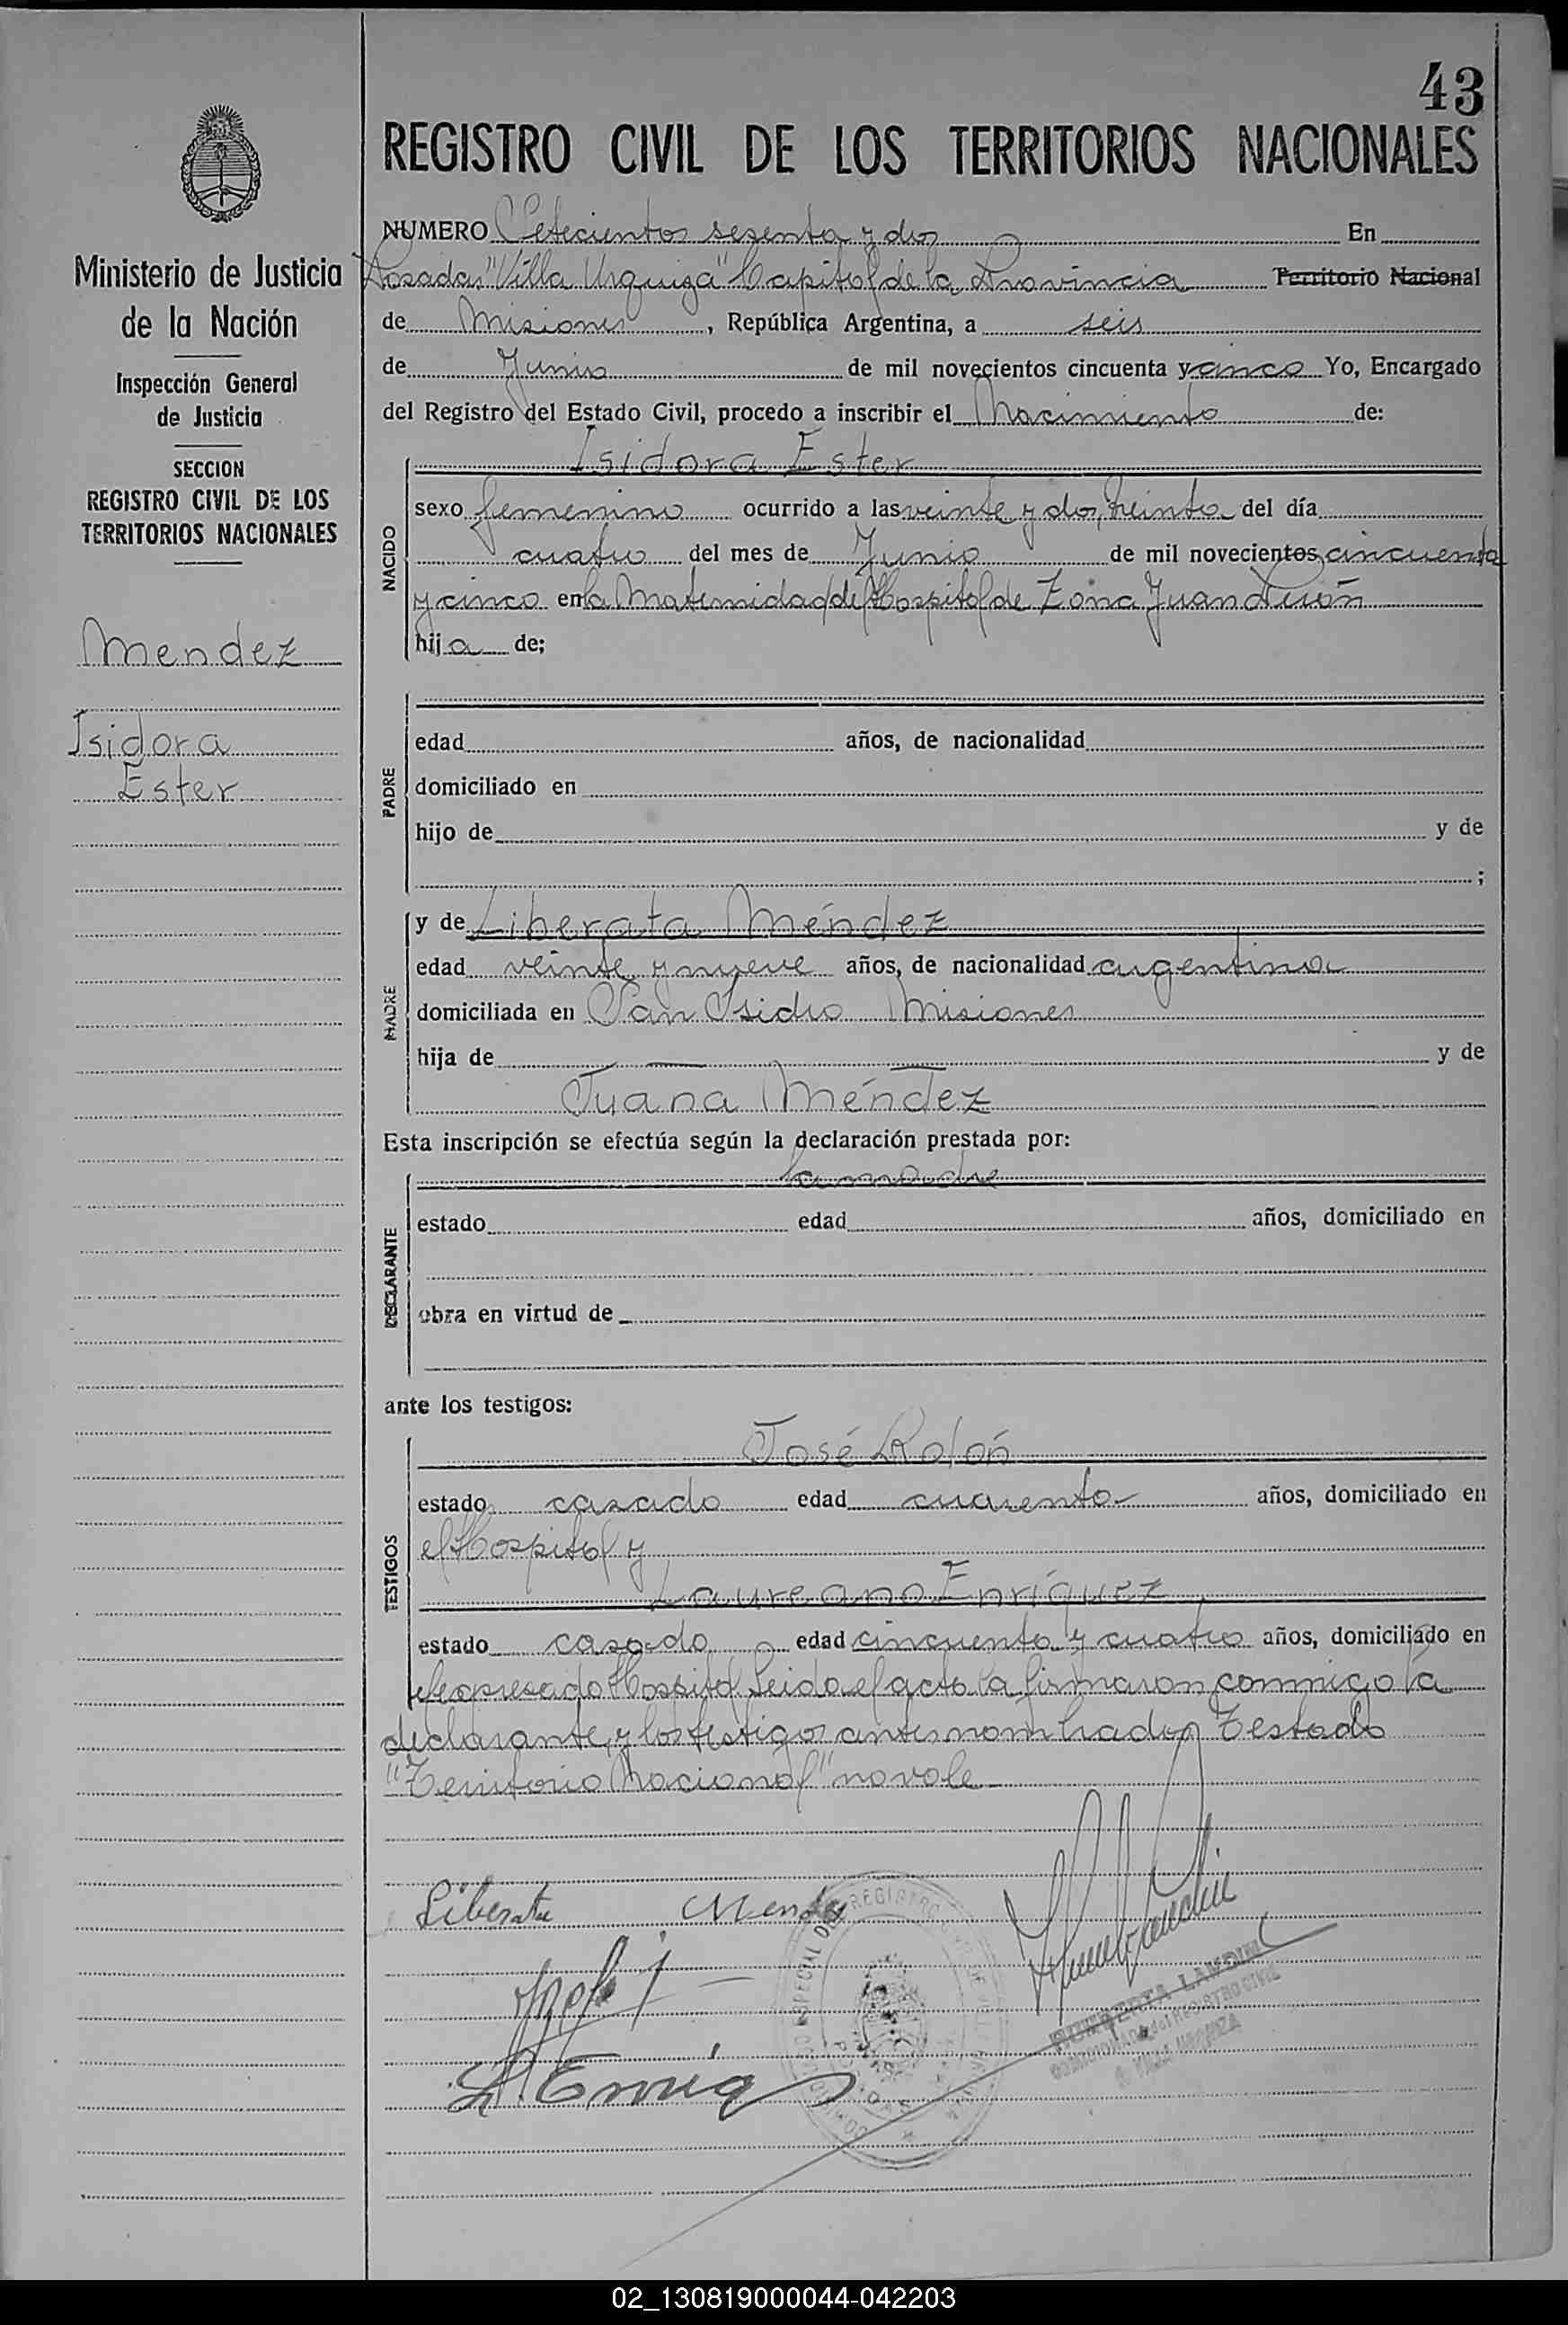 43
REGISTRO CIVIL DE LOS TERRITORIOS NACIONALES
Ministerio de Justicia
de la Nación
Inspección General
de Justicia
SECCION
REGISTRO CIVIL DE LOS
TERRITORIOS NACIONALES
Mendez
Isidora
Ester
NUMERO Setecientos sesenta y dos En
Posadas "Villa Urquiza" Capital de la Provincia Territorio Nacional
de Misiones, República Argentina, a seis
de Junio de mil novecientos cincuenta y cinco Yo, Encargado
del Registro del Estado Civil, procedo a inscribir el Nacimiento de:
Isidora Ester
NACIDO
sexo femenino ocurrido a las veinte y dos, treinta del día
cuatro del mes de Junio de mil novecientos cincuenta
y cinco en la Maternidad del Hospital de Zona Juan Perón
hija de;
PADRE
edad años, de nacionalidad
domiciliado en
hijo de y de
;
MADRE
y de Liberata Méndez
edad veinte y nueve años, de nacionalidad argentina
domiciliada en San Isidro Misiones
hija de y de
Juana Méndez
Esta inscripción se efectúa según la declaración prestada por:
la madre
DECLARANTE
estado edad años, domiciliado en
obra en virtud de
ante los testigos:
TESTIGOS
José Rolón
estado casado edad cuarenta años, domiciliado en
el Hospital y
Laureano Enríquez
estado casado edad cincuenta y cuatro años, domiciliado en
el expresado Hospital. Leida el acta la firmaron conmigo la
declarante, y los testigos antes nombrados Testado
"Territorio Nacional" no vale
Liberata Mendez
L. Enriq
HUMBERTA LANDINI
REGISTRO CIVIL
02_130819000044-042203